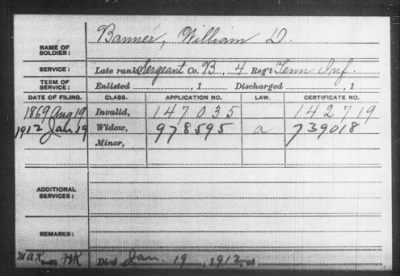 NAME OF SOLDIER: Banner, William D.
SERVICE: Late rank Sergeant Co. B, 4 Reg't Tenn Inf.
TERM OF SERVICE: Enlisted , 1 Discharged , 1
DATE OF FILING. CLASS. APPLICATION NO. LAW. CERTIFICATE NO.
1869 Aug 19 Invalid, 147035 142719
1912 Jan 19 Widow, 978595 a 739018
Minor,
ADDITIONAL SERVICES:
REMARKS:
Died Jan. 19, 1912, at